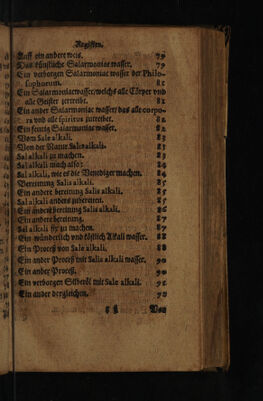 Register.
Auff ein andere weis. 79
Das künstliche Salarmoniac wasser. 79
Ein verborgen Salarmoniac wasser der Philo-
sophorum. 81
Ein Salarmoniacwasser/welchs alle Cörper vnd
alle Geister zertreibt. 81
Ein ander Salarmoniac wasser/das alle corpo-
ra vnd alle spiritus zutreibt. 82
Ein feurig Salarmoniac wasser. 82
Vom Sale alkali. 83
Von der Natur Salis alkali. 83
Sal alkali zu machen. 83
Sal alkali mach also: 84
Sal alkali, wie es die Venediger machen. 84
Bereitung Salis alkali. 85
Ein andere bereitung Salis alkali. 85
Sal alkali anders zubereiten. 85
Ein andere bereitung Salis alkali. 86
Ein andere bereitung. 87
Sal alkali fix zu machen. 87
Ein wünderlich vnd köstlich Alkali wasser. 88
Ein Proceß von Sale alkali. 88
Ein ander Proceß mit Salis alkali wasser. 90
Ein ander Proceß. 90
Ein verborgen Silberöl mit Sale alkali. 91
Ein ander dergleichen. 93
Von